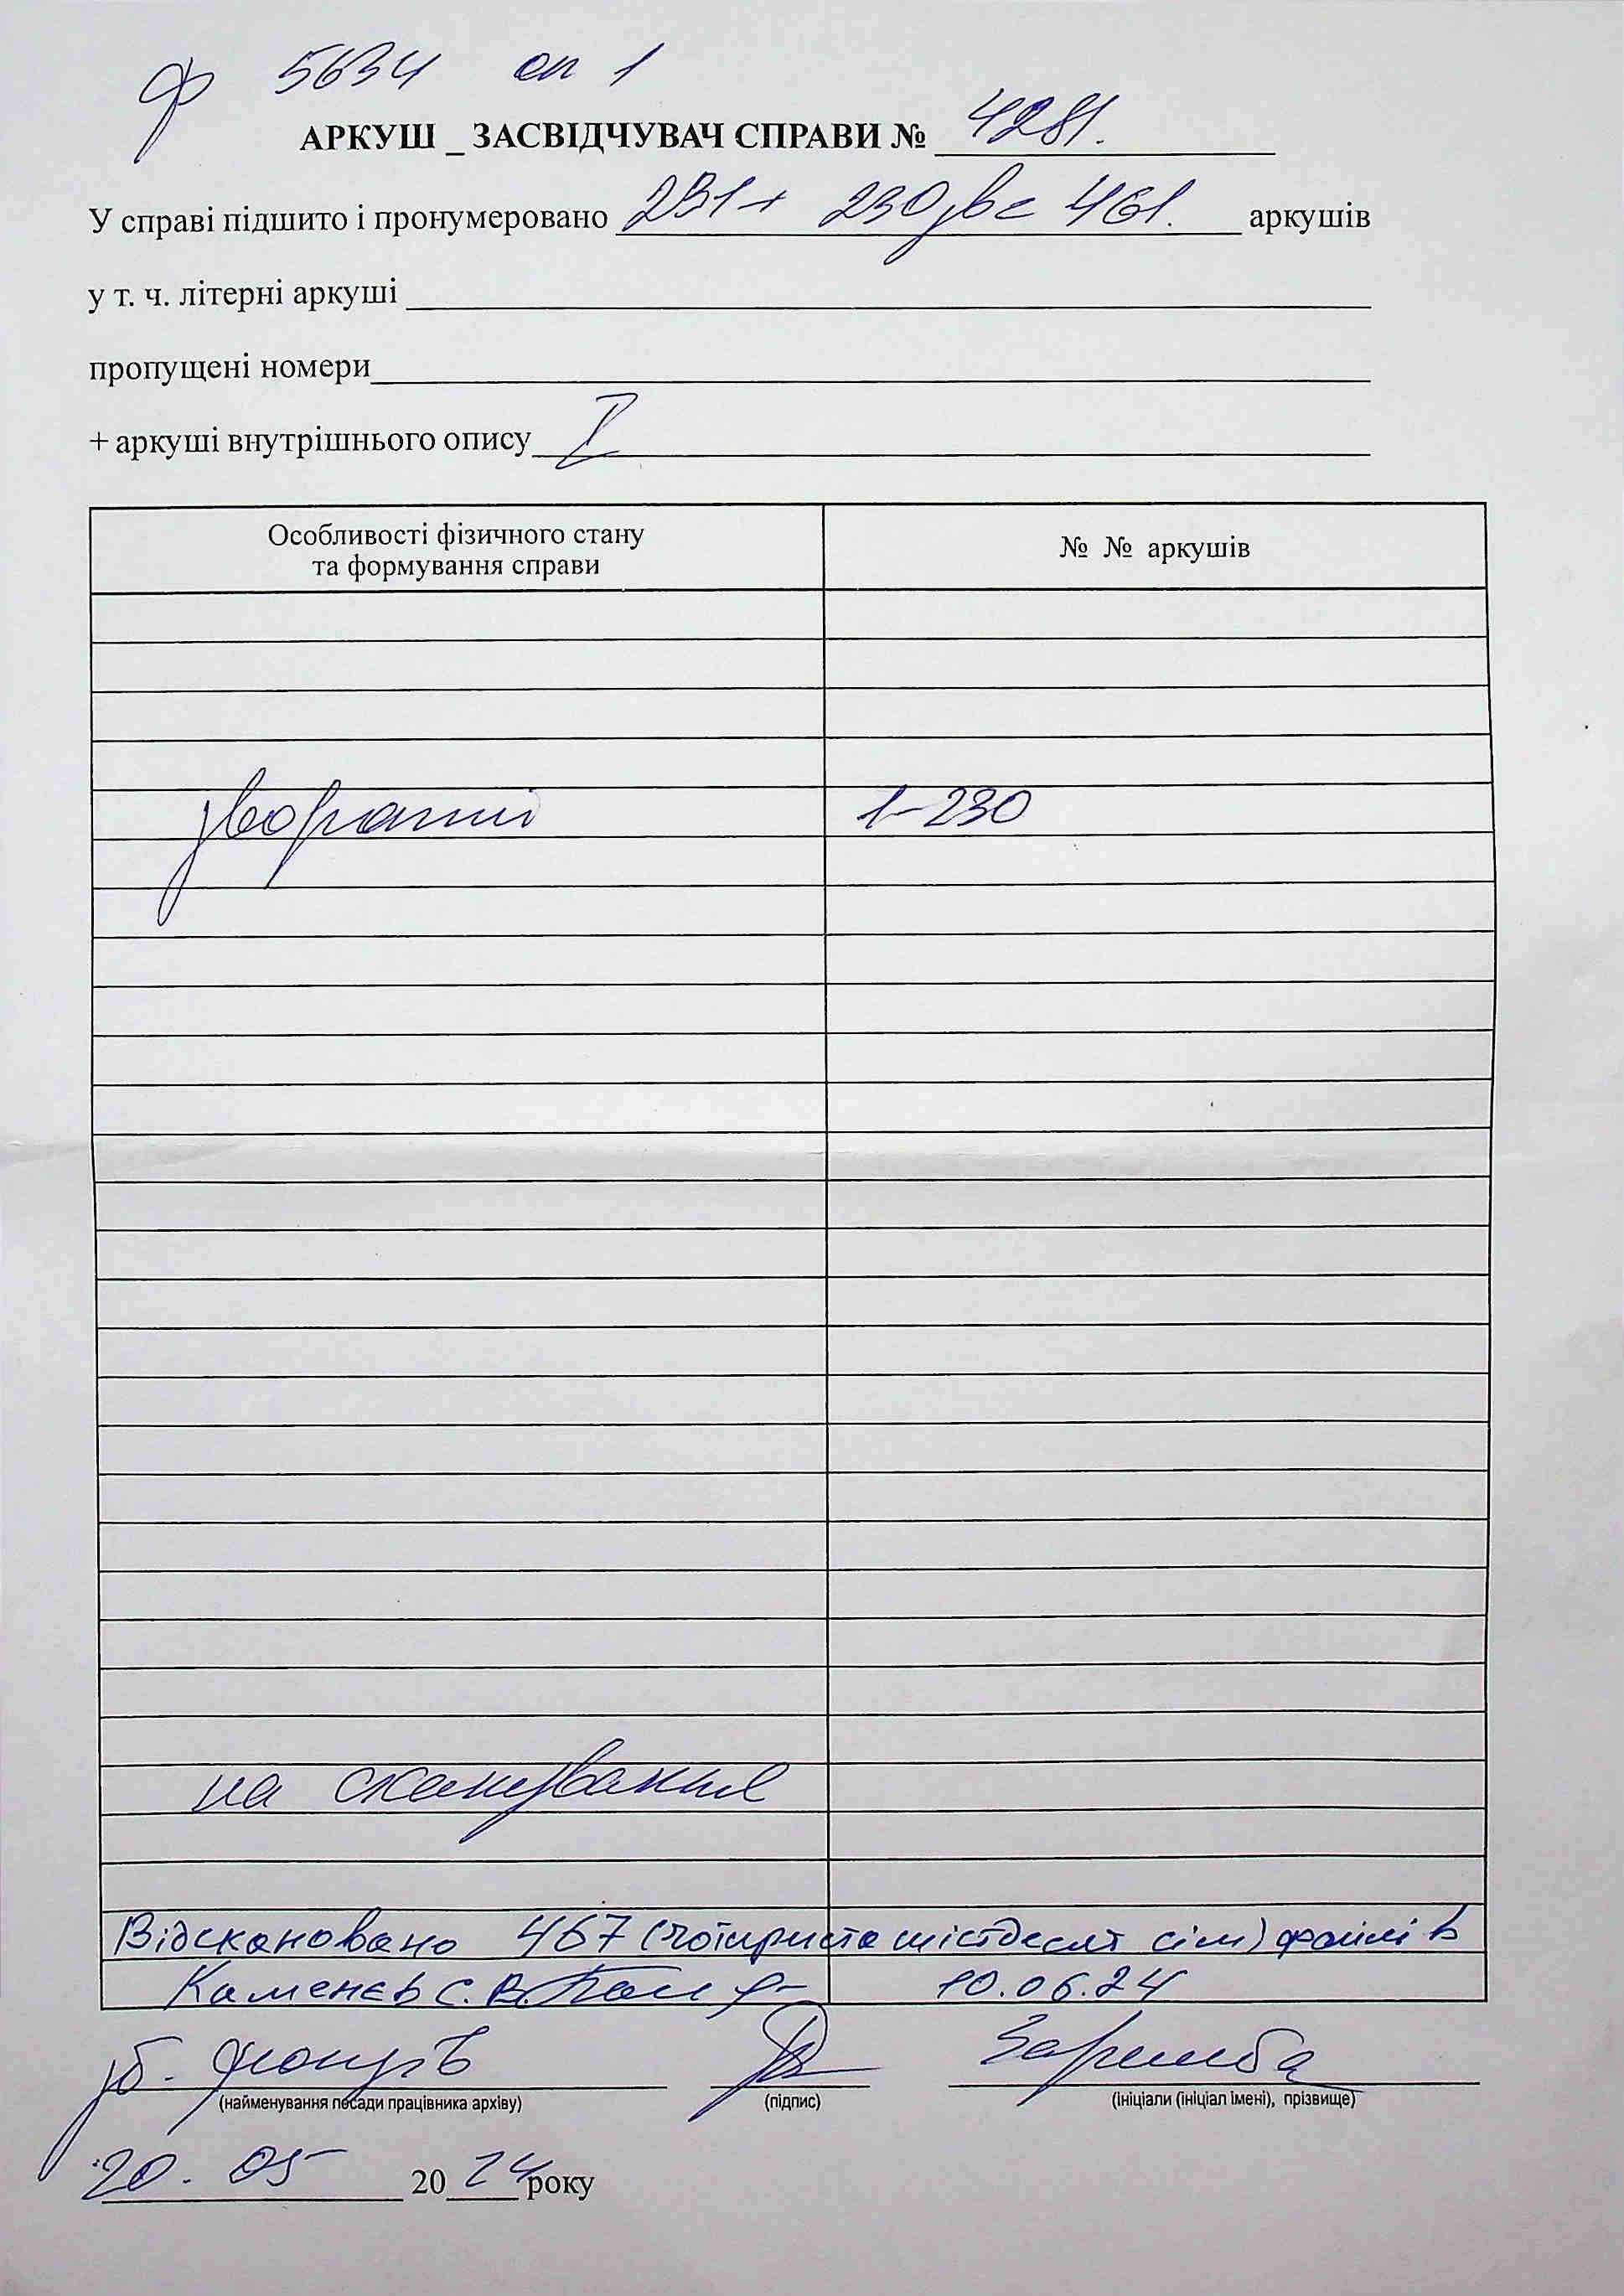 ф 5634 оп 1
АРКУШ _ ЗАСВІДЧУВАЧ СПРАВИ № 4281.
У справі підшито і пронумеровано 231 + 230зв = 461. аркушів
у т. ч. літерні аркуші
пропущені номери
+ аркуші внутрішнього опису I
Особливості фізичного стану
та формування справи
№ № аркушів
зворотній 1-230
на сканування
Відскановано 467 (чотириста шістдесят сім) файлів
Каменєв С.В. 10.06.24
зб. фондів Заремба
(найменування посади працівника архіву) (підпис) (ініціали (ініціал імені), прізвище)
20. 05 2024 року